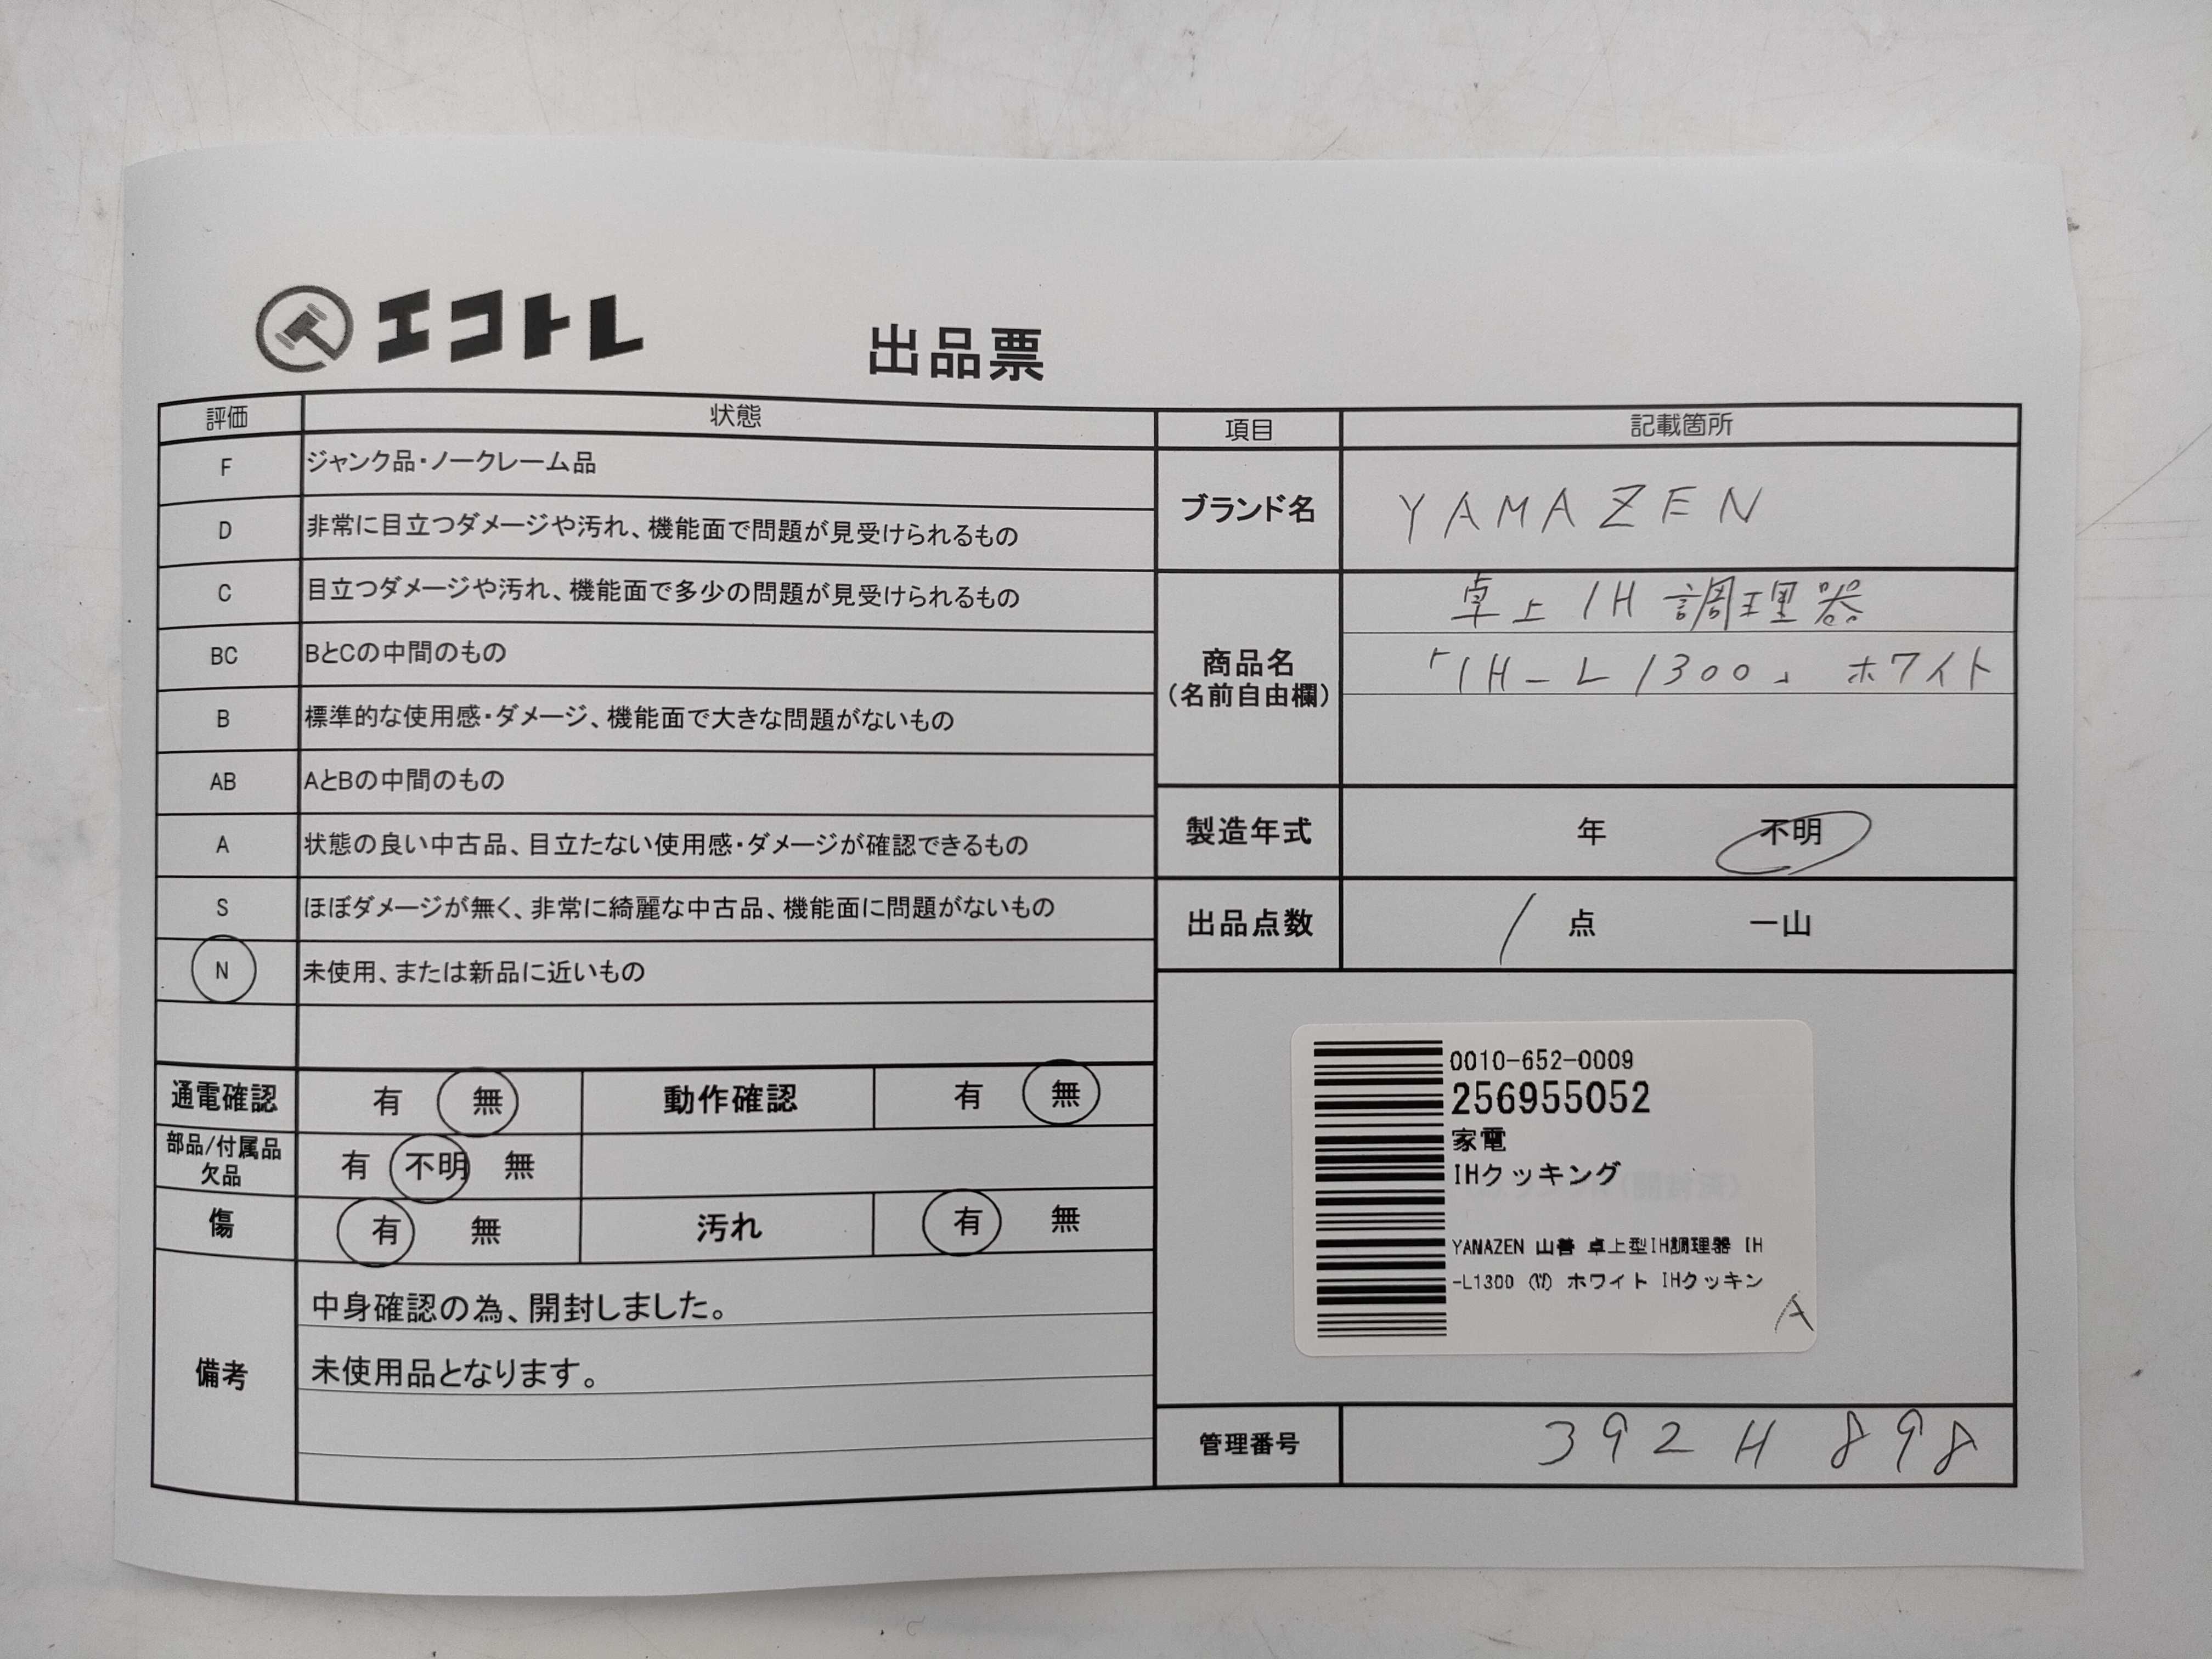 エコトレ
出品票
評価 状態
F ジャンク品・ノークレーム品
D 非常に目立つダメージや汚れ、機能面で問題が見受けられるもの
C 目立つダメージや汚れ、機能面で多少の問題が見受けられるもの
BC BとCの中間のもの
B 標準的な使用感・ダメージ、機能面で大きな問題がないもの
AB AとBの中間のもの
A 状態の良い中古品、目立たない使用感・ダメージが確認できるもの
S ほぼダメージが無く、非常に綺麗な中古品、機能面に問題がないもの
N 未使用、または新品に近いもの
通電確認 有 無 動作確認 有 無
部品/付属品
欠品
有 不明 無
傷 有 無 汚れ 有 無
備考
中身確認の為、開封しました。
未使用品となります。
項目 記載箇所
ブランド名 YAMAZEN
商品名
(名前自由欄)
卓上IH調理器
「IH-L1300」 ホワイト
製造年式 年 不明
出品点数 1 点 一山
0010-652-0009
256955052
家電
IHクッキング
YAMAZEN 山善 卓上型IH調理器 IH
-L1300 (W) ホワイト IHクッキン
A
管理番号 392H898